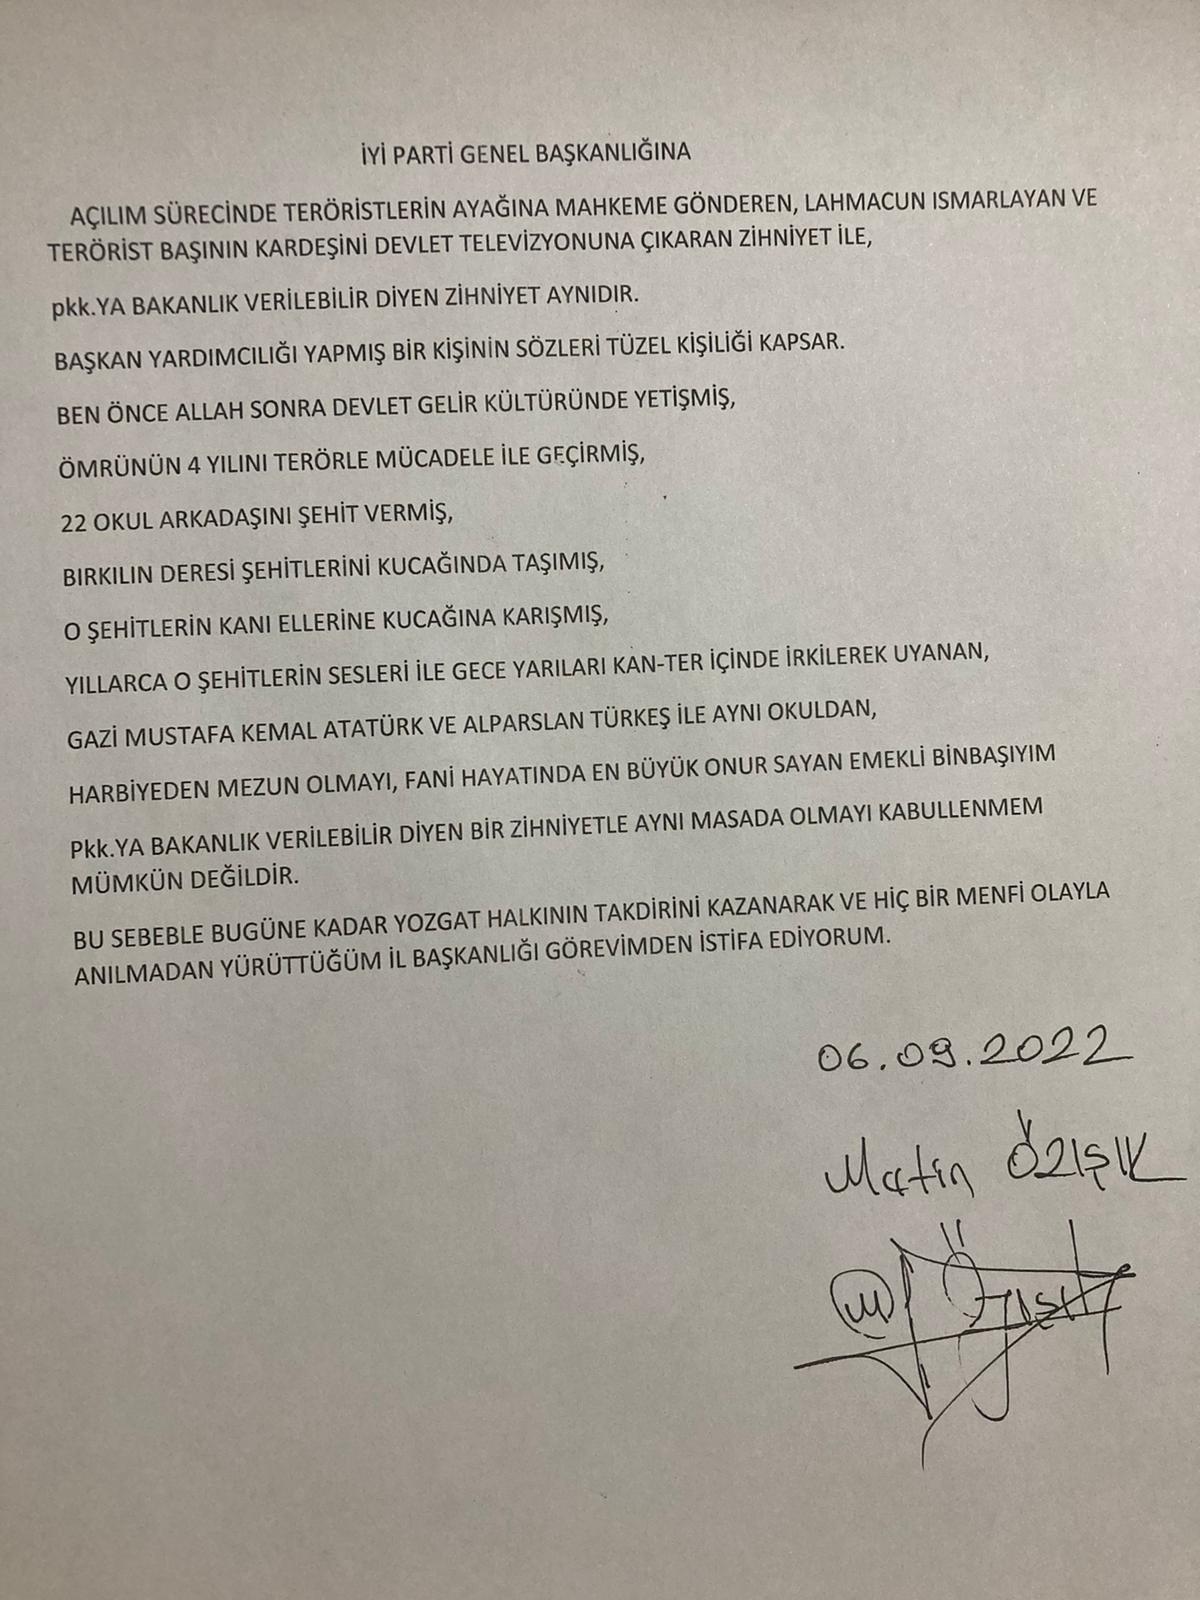 İYİ PARTİ GENEL BAŞKANLIĞINA
AÇILIM SÜRECİNDE TERÖRİSTLERİN AYAĞINA MAHKEME GÖNDEREN, LAHMACUN ISMARLAYAN VE
TERÖRİST BAŞININ KARDEŞİNİ DEVLET TELEVİZYONUNA ÇIKARAN ZİHNİYET İLE,
pkk.YA BAKANLIK VERİLEBİLİR DİYEN ZİHNİYET AYNIDIR.
BAŞKAN YARDIMCILIĞI YAPMIŞ BİR KİŞİNİN SÖZLERİ TÜZEL KİŞİLİĞİ KAPSAR.
BEN ÖNCE ALLAH SONRA DEVLET GELİR KÜLTÜRÜNDE YETİŞMİŞ,
ÖMRÜNÜN 4 YILINI TERÖRLE MÜCADELE İLE GEÇİRMİŞ,
22 OKUL ARKADAŞINI ŞEHİT VERMİŞ,
BIRKILIN DERESİ ŞEHİTLERİNİ KUCAĞINDA TAŞIMIŞ,
O ŞEHİTLERİN KANI ELLERİNE KUCAĞINA KARIŞMIŞ,
YILLARCA O ŞEHİTLERİN SESLERİ İLE GECE YARILARI KAN-TER İÇİNDE İRKİLEREK UYANAN,
GAZİ MUSTAFA KEMAL ATATÜRK VE ALPARSLAN TÜRKEŞ İLE AYNI OKULDAN,
HARBİYEDEN MEZUN OLMAYI, FANİ HAYATINDA EN BÜYÜK ONUR SAYAN EMEKLİ BİNBAŞIYIM
Pkk.YA BAKANLIK VERİLEBİLİR DİYEN BİR ZİHNİYETLE AYNI MASADA OLMAYI KABULLENMEM
MÜMKÜN DEĞİLDİR.
BU SEBEBLE BUGÜNE KADAR YOZGAT HALKININ TAKDİRİNİ KAZANARAK VE HİÇ BİR MENFİ OLAYLA
ANILMADAN YÜRÜTTÜĞÜM İL BAŞKANLIĞI GÖREVİMDEN İSTİFA EDİYORUM.
06.09.2022
Metin ÖZIŞIK